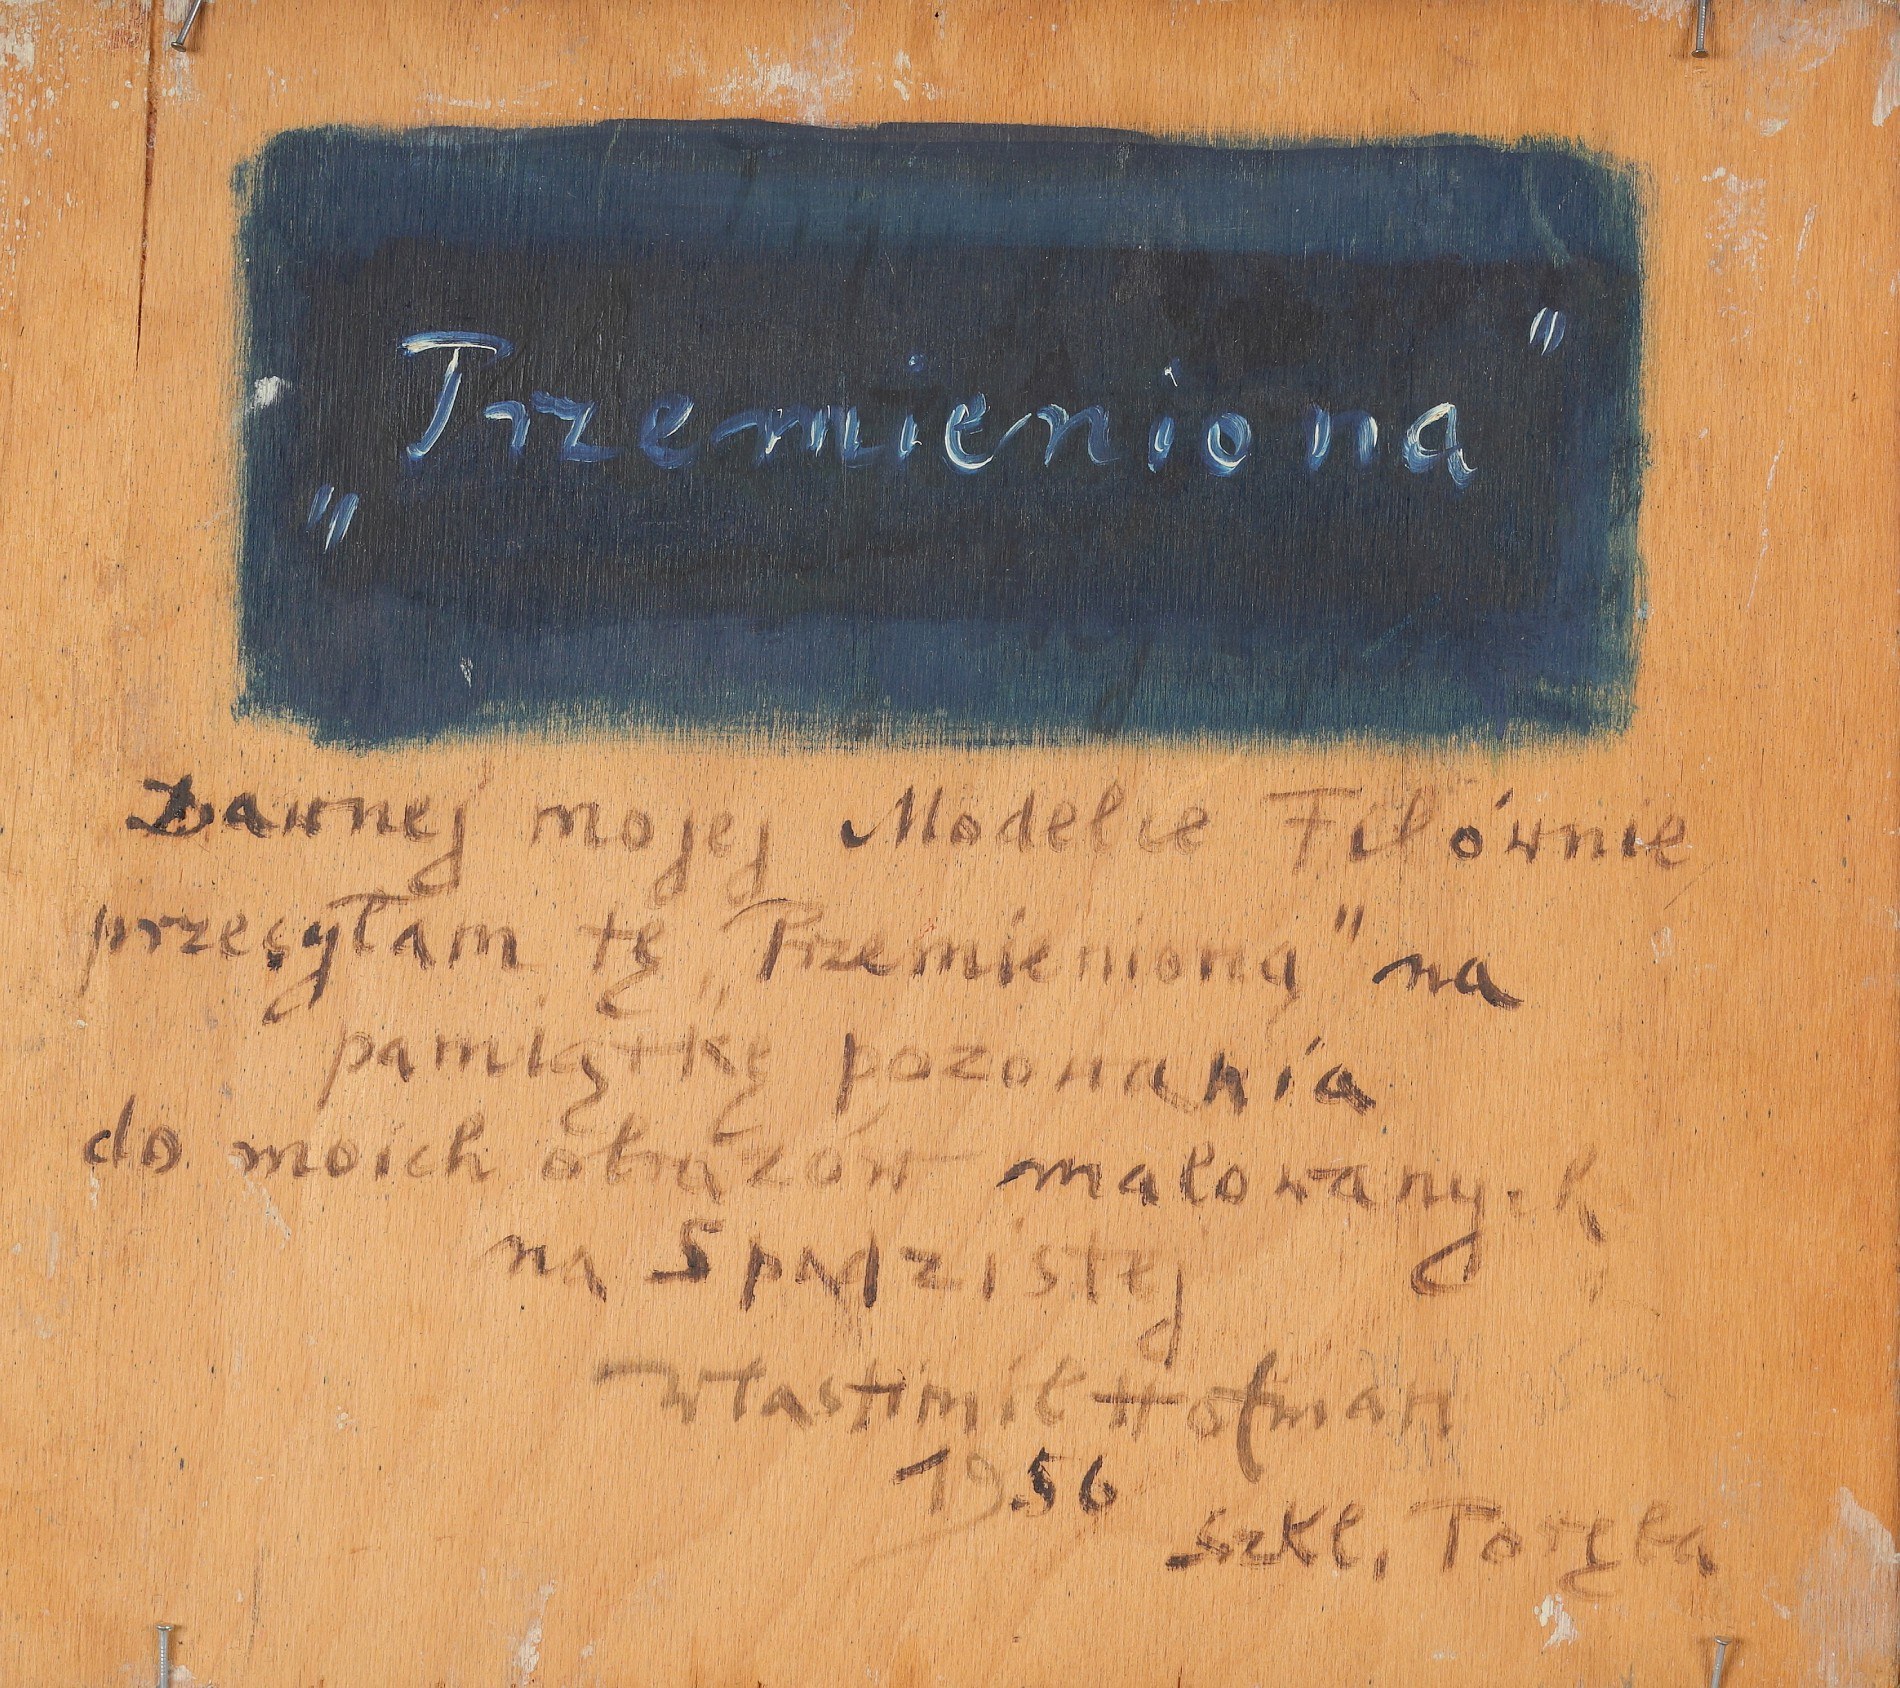 „Przemieniona"
Dawnej mojej Modelce Filównie
przesyłam tę „Przemienioną" na
pamiątkę pozowania
do moich obrazów malowanych
na Spadzistej
Wlastimil Hofman
1956
Szkl, Poręba